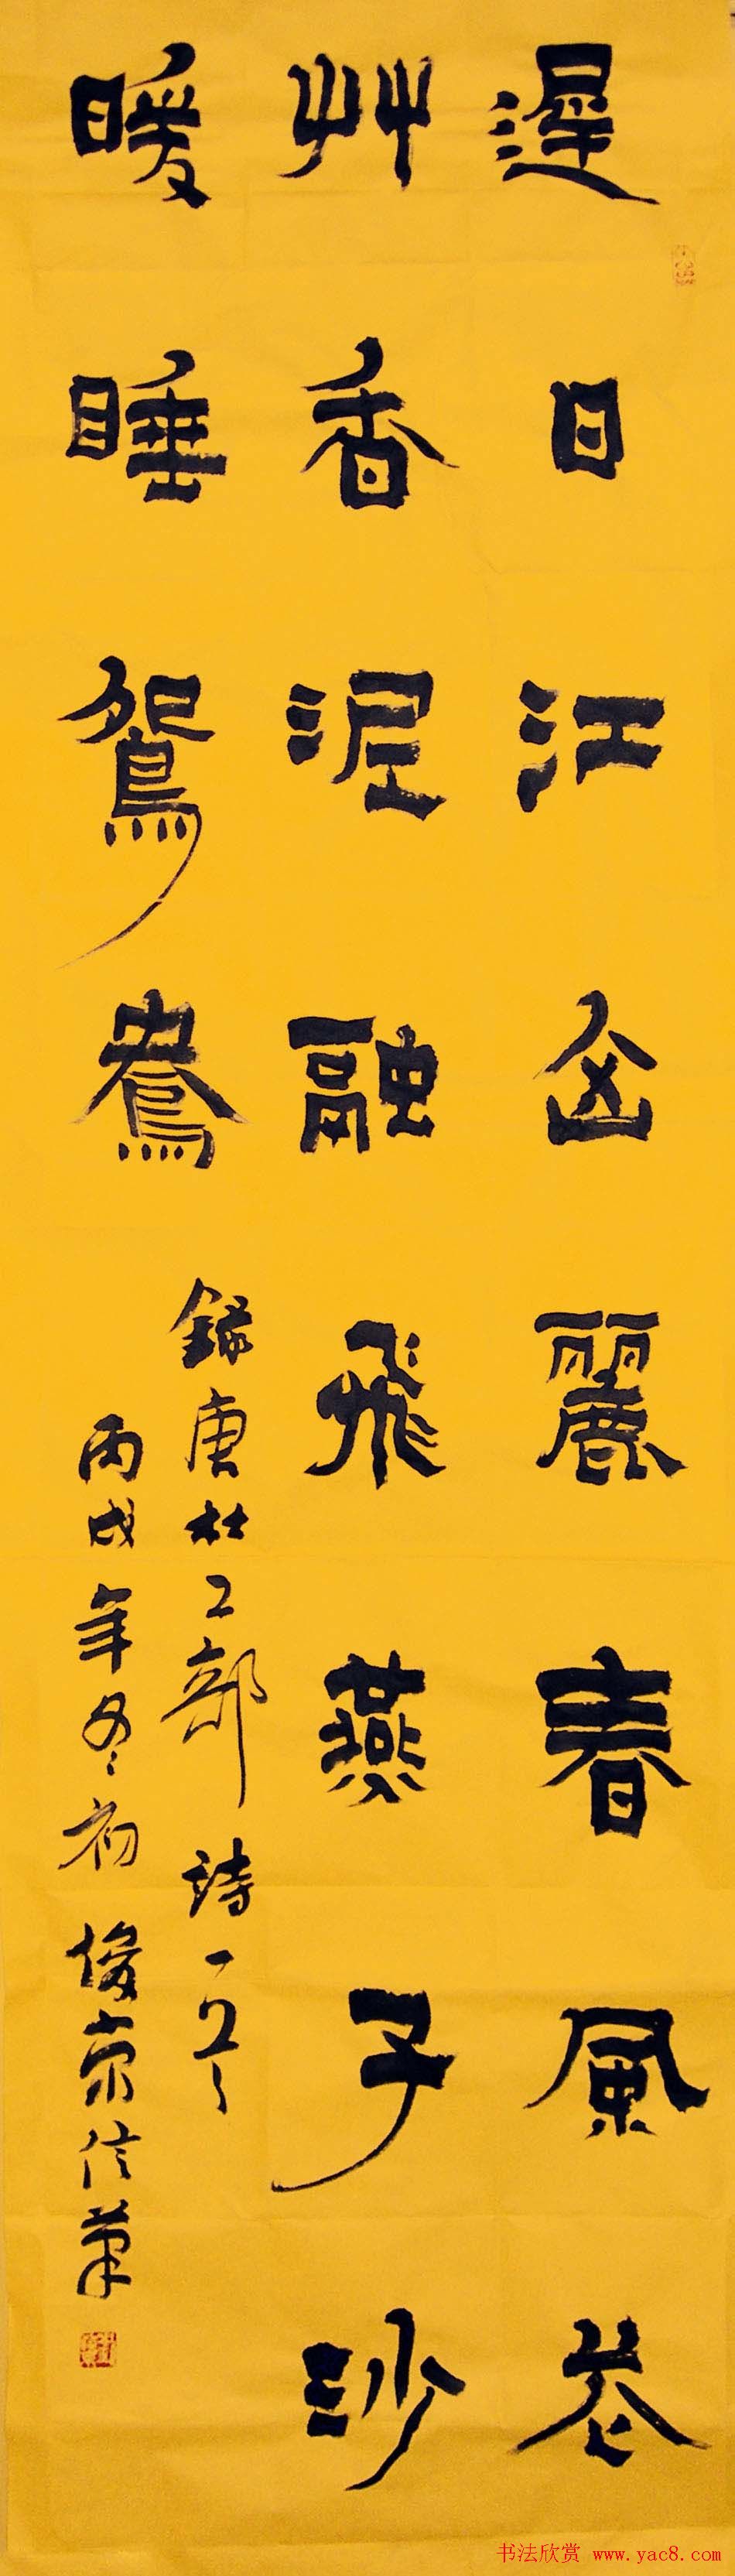 遲日江山麗春風花
艸香泥融飛燕子沙
暖睡鴛鴦
録唐杜工部詩一首
丙戌年冬初俊信筆
书法欣赏 www.yac8.com